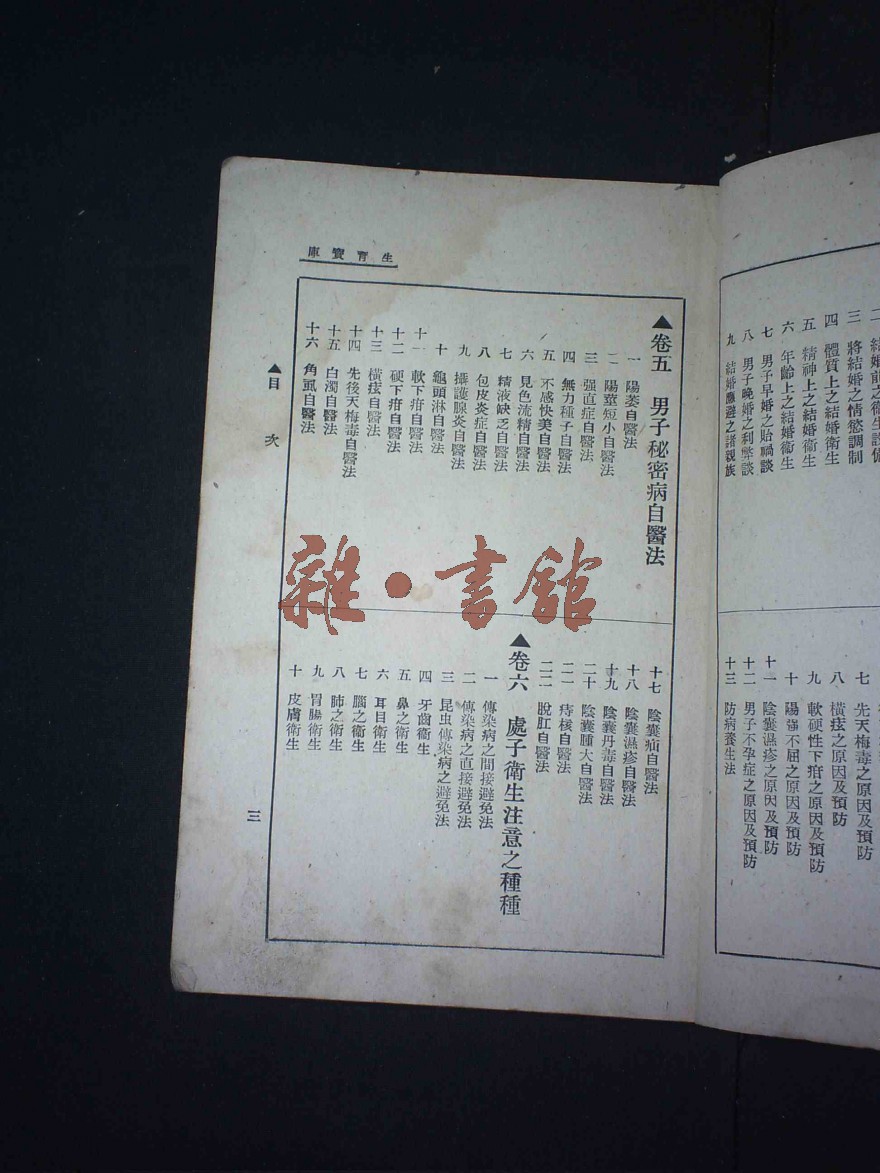 二 結婚前之衛生設備
三 將結婚之情慾調制
四 體質上之結婚衛生
五 精神上之結婚衛生
六 年齡上之結婚衛生
七 男子早婚之貽禍談
八 男子晚婚之利弊談
九 結婚應避之諸親族
七 先天梅毒之原因及預防
八 橫痃之原因及預防
九 軟硬性下疳之原因及預防
十 陽强不屈之原因及預防
十一 陰囊濕疹之原因及預防
十二 男子不孕症之原因及預防
十三 防病養生法
生育寶庫
▲卷五 男子秘密病自醫法
一 陽萎自醫法
二 陽莖短小自醫法
三 强直症自醫法
四 無力種子自醫法
五 不感快美自醫法
六 見色流精自醫法
七 精液缺乏自醫法
八 包皮炎症自醫法
九 攝護腺炎自醫法
十 龜頭淋自醫法
十一 軟下疳自醫法
十二 硬下疳自醫法
十三 橫痃自醫法
十四 先後天梅毒自醫法
十五 白濁自醫法
十六 角虱自醫法
十七 陰囊疝自醫法
十八 陰囊濕疹自醫法
十九 陰囊丹毒自醫法
二十 陰囊腫大自醫法
二一 痔核自醫法
二二 脫肛自醫法
▲卷六 處子衛生注意之種種
一 傳染病之間接避免法
二 傳染病之直接避免法
三 昆虫傳染病之避免法
四 牙齒衛生
五 鼻之衛生
六 耳目衛生
七 腦之衛生
八 肺之衛生
九 胃腸衛生
十 皮膚衛生
▲目次
三
雜·書館